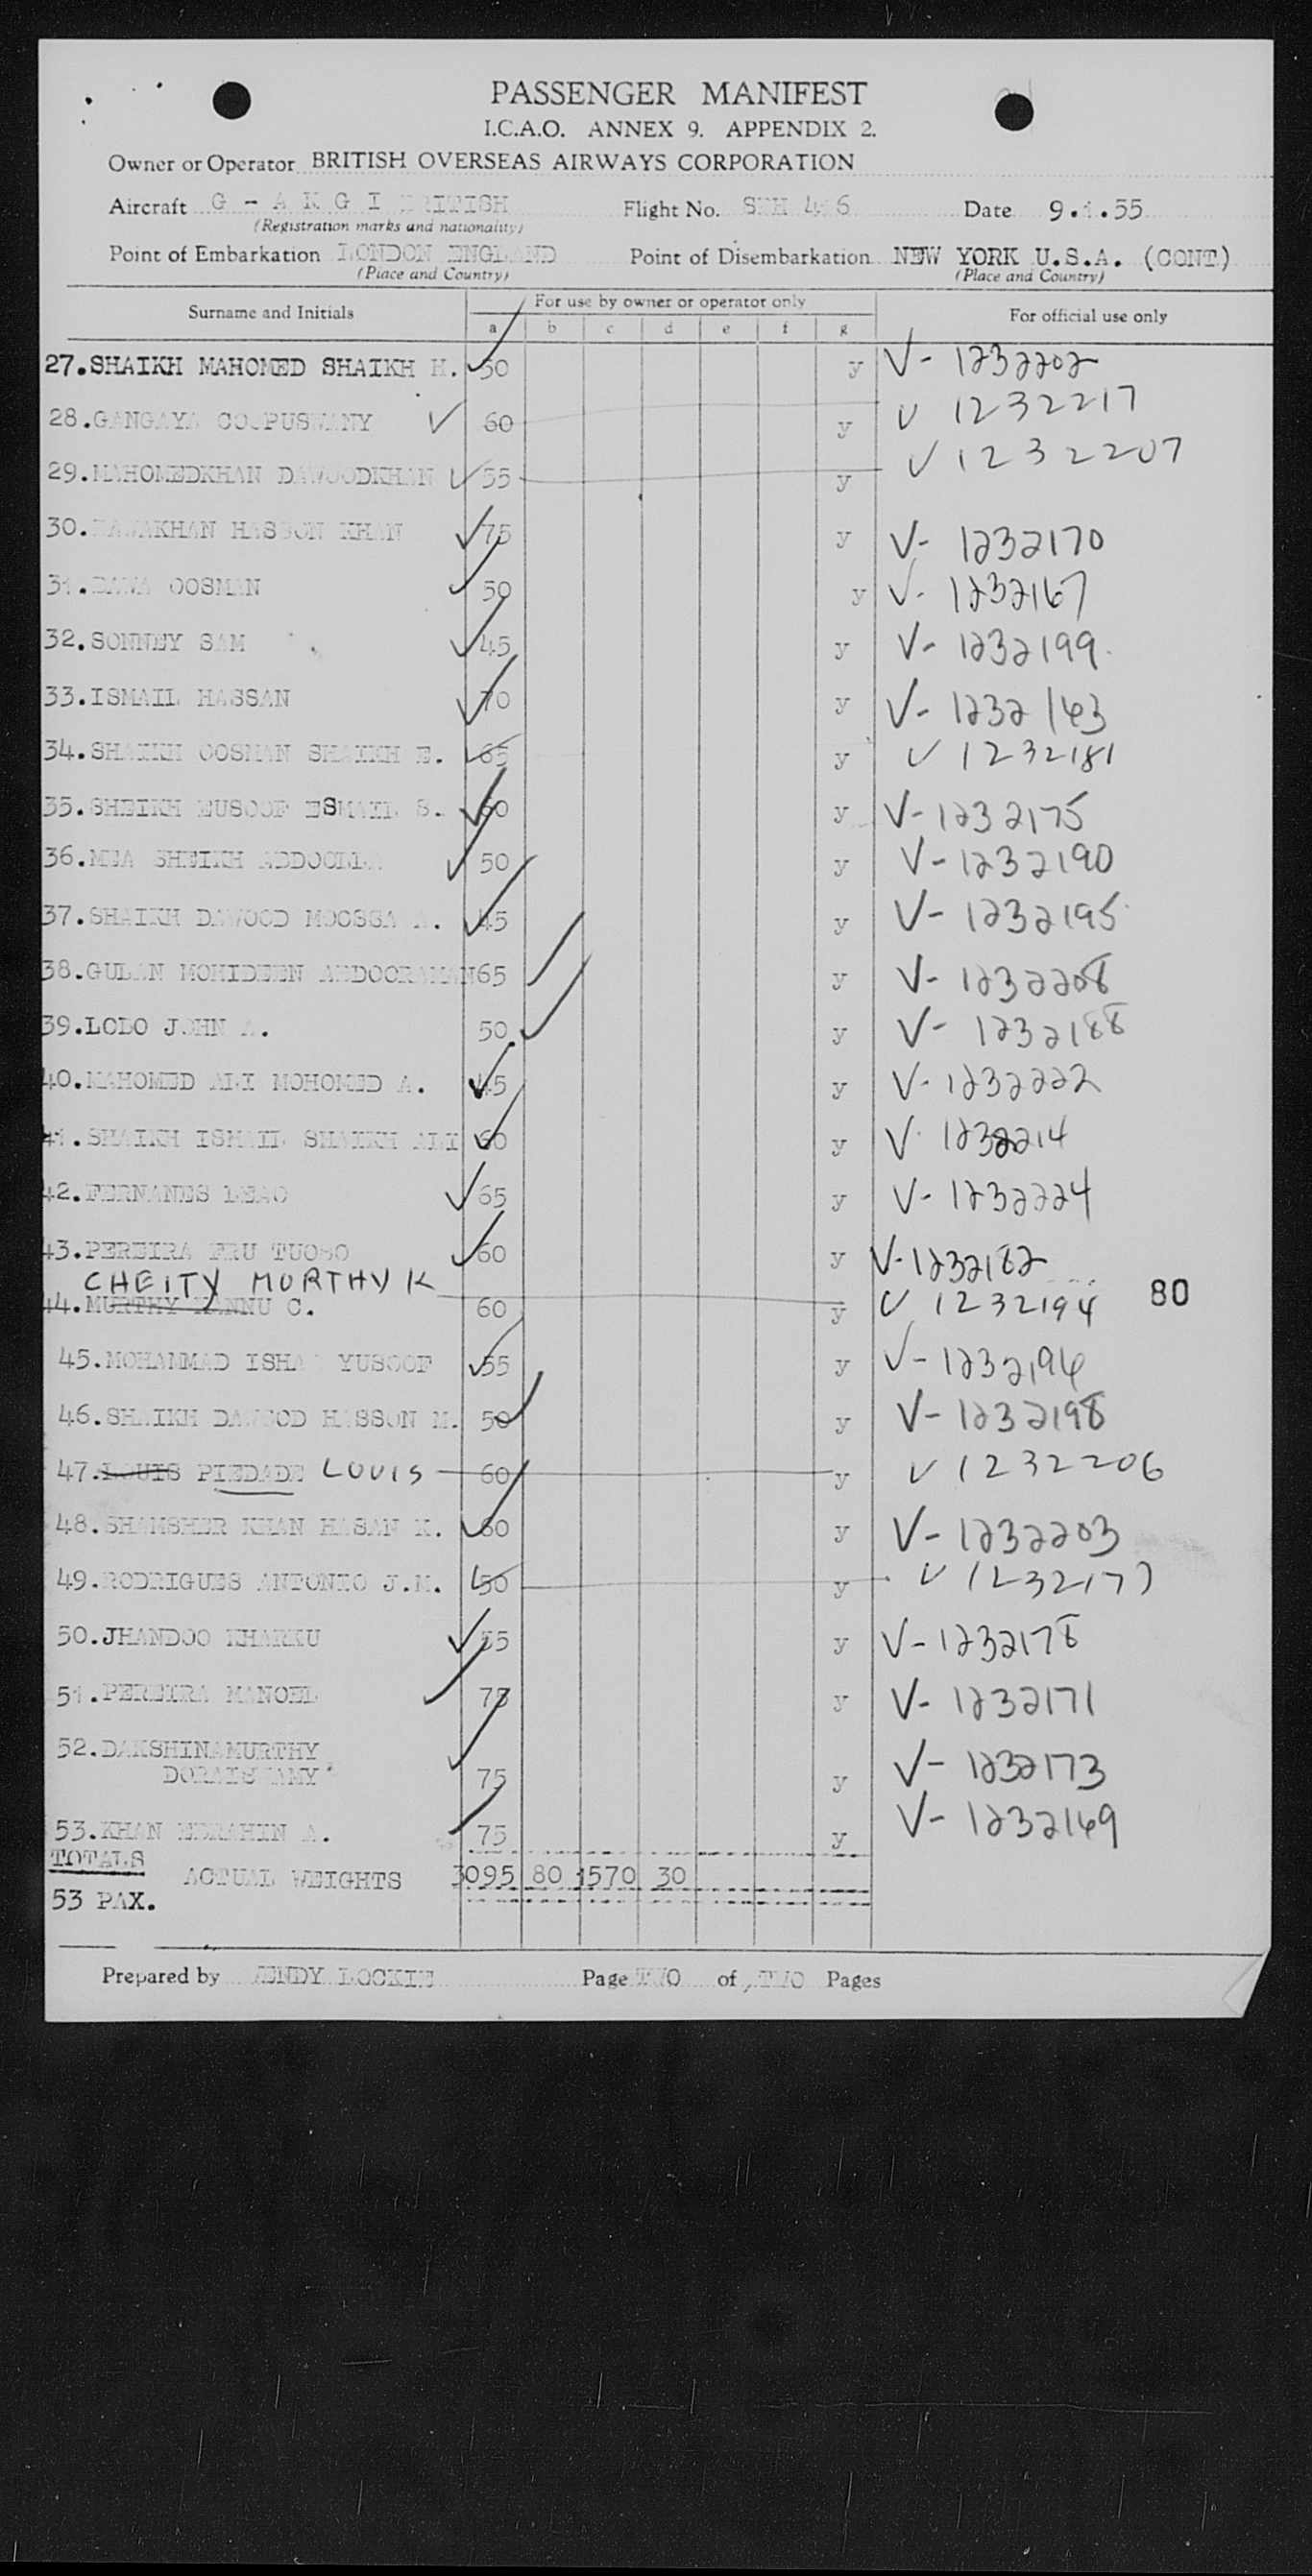 PASSENGER MANIFEST
I.C.A.O. ANNEX 9. APPENDIX 2.
Owner or Operator BRITISH OVERSEAS AIRWAYS CORPORATION
Aircraft G - A K G I BRITISH Flight No. Date 9.1.55
(Registration marks and nationality)
Point of Embarkation LONDON ENGLAND Point of Disembarkation NEW YORK U.S.A. (CONT)
(Place and Country) (Place and Country)
Surname and Initials For use by owner or operator only For official use only
a b c d e f g
27.SHAIKH MAHOMED SHAIKH H. 50 y V- 1232202
28.GANGAYA COOPUSWANY V 60 y V 1232217
29.MAHOMEDKHAN DAWOODKHAN V 55 y V 1232207
30. HASSON KHAN 75 y V- 1232170
31.DAWA OOSMAN 50 y V- 1232167
32.SONNEY SAM 45 y V- 1232199
33.ISMAIL HASSAN 70 y V- 1232163
34.SHAIKH OOSMAN SHAIKH E. 65 y V 1232181
35.SHEIKH EUSOOF ESMAIL S. 60 y V- 1232175
36.MEA SHEIKH ABDOOLLA 50 y V- 1232190
37.SHAIKH DAWOOD MOOSSA A. 45 y V- 1232195
38.GULAN MOHIDEEN ABDOORAMAN 65 y V- 1232208
39.LOBO JOHN A. 50 y V- 1232188
40.MAHOMED ALI MOHOMED A. 45 y V- 1232222
41.SHAIKH ISMAIL SHAIKH ALI 60 y V- 1232214
42.FERNANES LEAO 65 y V- 1232224
43.PEREIRA FRU TUOSO 60 y V- 1232182
CHEITY MURTHY K
44.MURTHY KANNU C. 60 y V 1232194 80
45.MOHAMMAD ISHA YUSOOF 55 y V- 1232196
46.SHAIKH DAWOOD HASSON M. 50 y V- 1232198
47.LOUIS PIEDADE LOUIS 60 y V 1232206
48.SHAMSHER KHAN HASAN K. 60 y V- 1232203
49.RODRIGUES ANTONIO J.M. 50 y V 1232177
50.JHANDOO KHARKU 55 y V- 1232178
51.PEREIRA MANOEL 75 y V- 1232171
52.DAKSHINAMURTHY
DORAISWAMY 75 y V- 1232173
53.KHAN EBRAHIN A. 75 y V- 1232169
TOTALS
ACTUAL WEIGHTS 3095 80 1570 30
53 PAX.
Prepared by WENDY LOCKIE Page TWO of TWO Pages